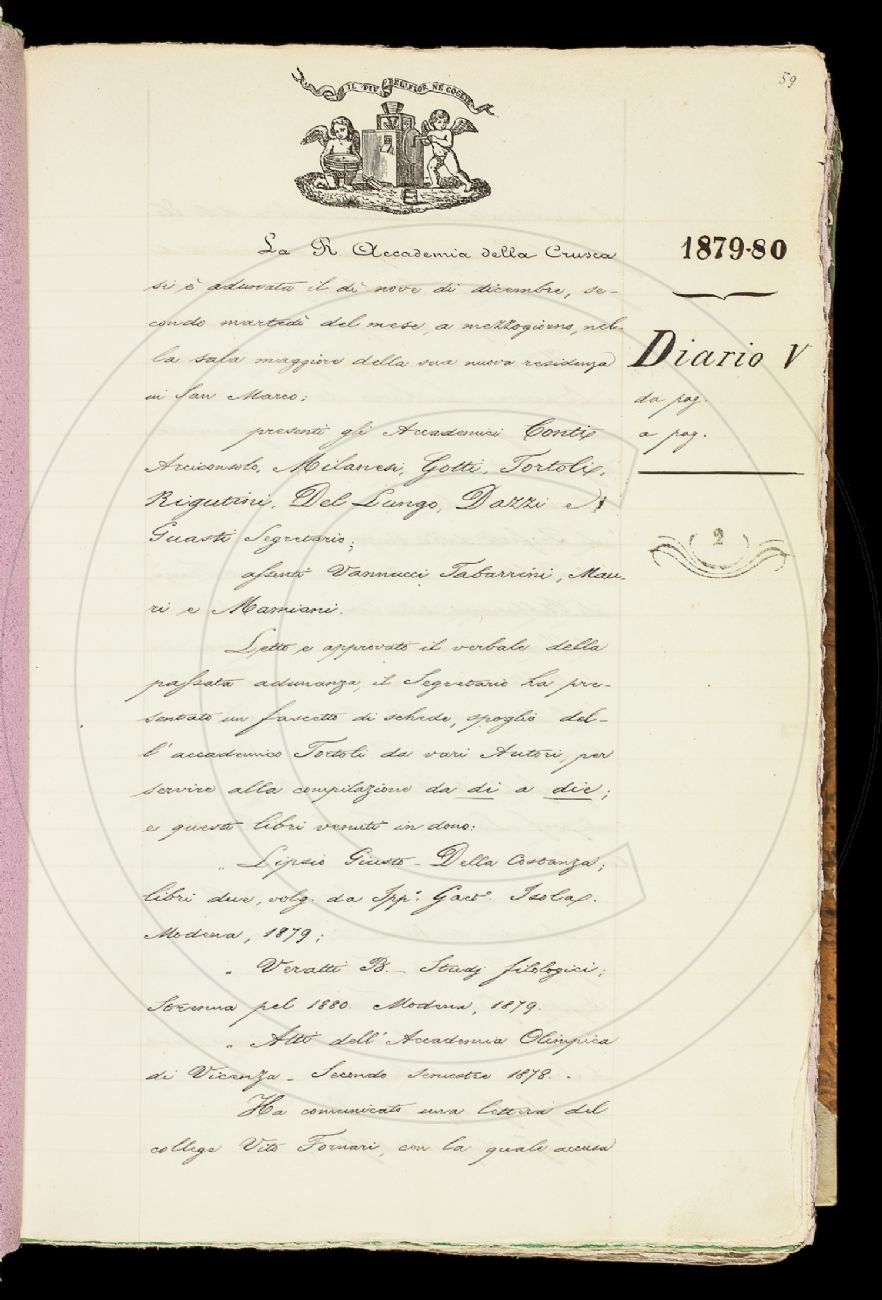 59
IL PIÙ BEL FIOR NE COGLIE
La R. Accademia della Crusca
si è adunata il dì nove di dicembre, se-
condo martedì del mese, a mezzogiorno, nel-
la sala maggiore della sua nuova residenza
in San Marco;
presenti gli Accademici Conti
Arciconsolo, Milanesi, Gotti, Tortoli,
Rigutini, Del Lungo, Dazzi e
Guasti Segretario;
assenti Vannucci, Tabarrini, Mau-
ri e Mamiani.
Letto e approvato il verbale della
passata adunanza, il Segretario ha pre-
sentato un fascetto di schede, spoglio del-
l'accademico Tortoli da vari Autori, per
servire alla compilazione da di a die;
e questi libri venuti in dono:
„ Lipsio Giusto – Della Costanza;
libri due, volg. da Ipp.º Gaet.º Isola.
Modena, 1879;
„ Veratti B. – Studj filologici;
Strenna pel 1880. Modena, 1879.
„ Atti dell'Accademia Olimpica
di Vicenza – Secondo semestre 1878. –
Ha comunicato una lettera del
collega Vito Fornari, con la quale accusa
1879-80
Diario V
da pag.
a pag.
2